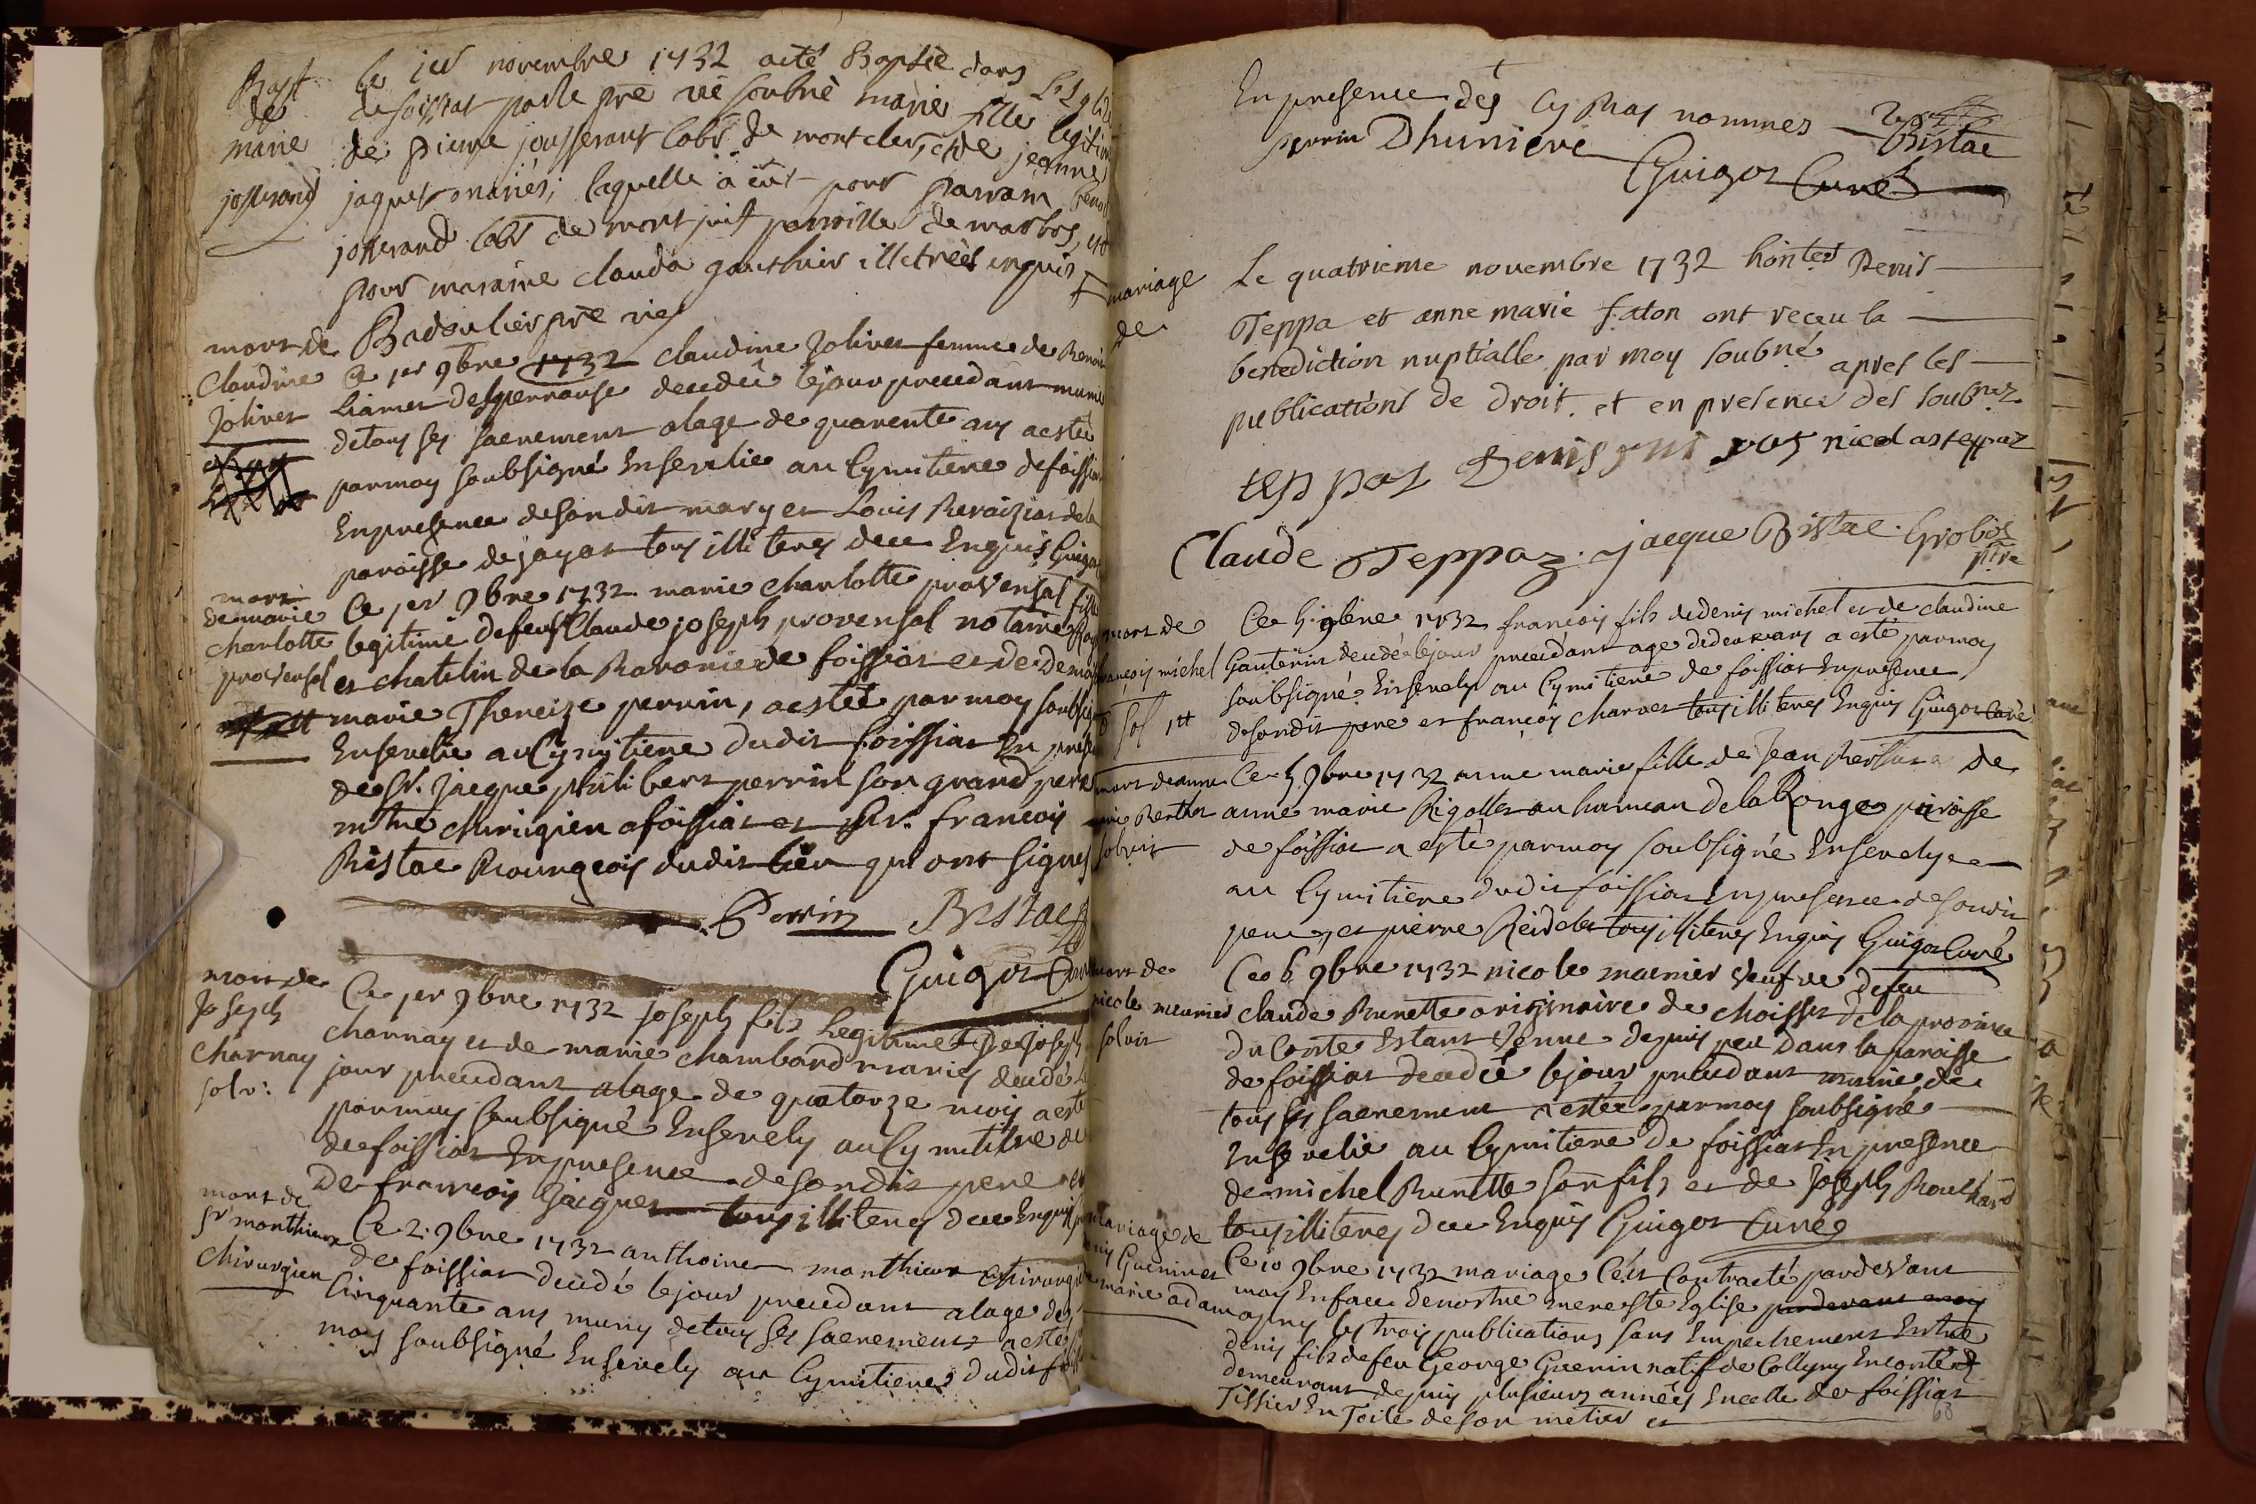 Bapt
de
marie
josserand
le 1er novembre 1732 a eté Baptiée dans L'Eglise
de foissiat par le prê vié soubné marie fille legitime
de pierre josserant labr de montcler, et de jeanne
jaquet mariés; laquelle a eüt pour parrain benoit
josserand labr de mont juif parroisse de marbos, et
pour maraine clauda gauthier illetrées enquis
Bidoulier prê vié
mort de
Claudine
Joliver
Ce 1er 9bre 1732 Claudine Joliver femme de Benoit
decedée le jour precedant munie
de tous ses sacrement alage de quarente ans a estée
par moy soubsigné Ensevelie au Cymitiere de foissiat
En presence de sondit mary et Louis de la
paroisse de jayat tous illiterés deue Enquis Guigot
mort
de marie
charlotte
provensal
Ce 1er 9bre 1732 marie Charlotte provensal fille
legitime de feu Sr Claude joseph provensal notaire
et chatelin de la Baronie de foissiat et de
marie Thereize perrin, a estée par moy soubsigné
Ensevelie au Cymitiere dudit foissiat En presence
de Sr. Jacque philibert perrin son grand pere
mtre chirurgien a foissiat et Sr. francois
Bistac Bourgeois dudit lieu qui ont signés
Perrin Bistac
Guigot Curé
mort de
Joseph
Charnay
solv:
Ce 1er 9bre 1732 Joseph fils Legitime De Joseph
Charnay et de marie Chambard mariés decedé le
jour precedant alage de quatorze mois a esté
par moy soubsigné Ensevely au Cymitiere de
de foissiat En presence de sondit pere et
De francois Jacquet tous illiterés deue Enquis
mort de
Sr monthieux
Chirurgien
Ce 2. 9bre 1732 anthoine monthieux Chirurgien
de foissiat decedé le jour precedant alage de
Cinquante ans muny de tous ses sacrement a esté
moy soubsigné Ensevely au Cymitiere dudit
En presence dés Cy bas nommés
perrin Dhuniere Bistac
Guigot Curé
mariage
de
Le quatrieme novembre 1732 honètes Denis
Teppa et anne marie faton ont receu la
benediction nuptialle par moy soubné apres les
publications de droit. et en presence des soubnez
teppaz Denis nicolas teppaz
Claude Teppaz. jacque Bistac. Grobos
ptre
mort de
françois michel
8 sol 1tt
Ce 5. 9bre 1732 françois fils de denis michel et de claudine
Gauterin decedé le jour precedant agé de deux ans a esté par moy
soubsigné Ensevely au Cymitiere de foissiat En presence
de sondit pere et françois Charnet tous illiterés Enquis Guigot Curé
mort de anne
solvit
Ce 5. 9bre 1732 anne marie fille de Jean de
anne marie Rigollet au hameau de la Ronge paroisse
de foissiat a esté par moy soubsigné Ensevelye
au Cymitiere dudit foissiat En presence de sondit
pere, et pierre Reidelet tous illiterés Enquis Guigot Curé
mort de
nicole meunier
solvit
Ce 6 9bre 1732 nicole meunier veufve de feu
claude Brunette originaire de Choisset de la province
du Conté Estant venue depuis peu Dans la paroisse
de foissiat decedée le jour precedant munie de
tous ses sacrement a estée par moy soubsigné
Ensevelie au Cymitiere de foissiat En presence
de michel Brunette son fils et de Joseph
tous illiterés deue Enquis Guigot Curé
mariage de
denis Guenin et
de marie adam
Ce 10 9bre 1732 mariage C'est Contracté par devant
moy En face de nostre mere Ste Eglise par devant moy
les trois publications sans Empechement Entre
Denis fils de feu George Guenin natif de Colligny En conté et
demeurant depuis plusieurs années En celle de foissiat
Tissier En Toile de son metier et
63